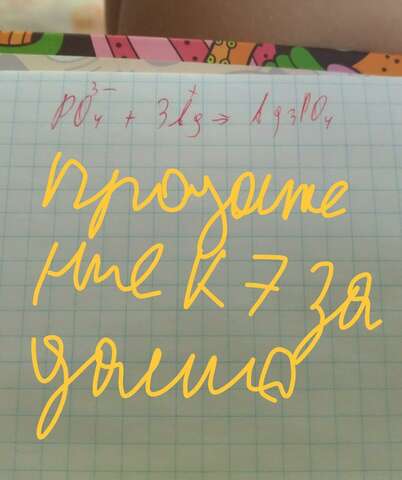 PO₄³⁻ + 3Ag⁺ → Ag₃PO₄
продолже
ние к 7 за
дания